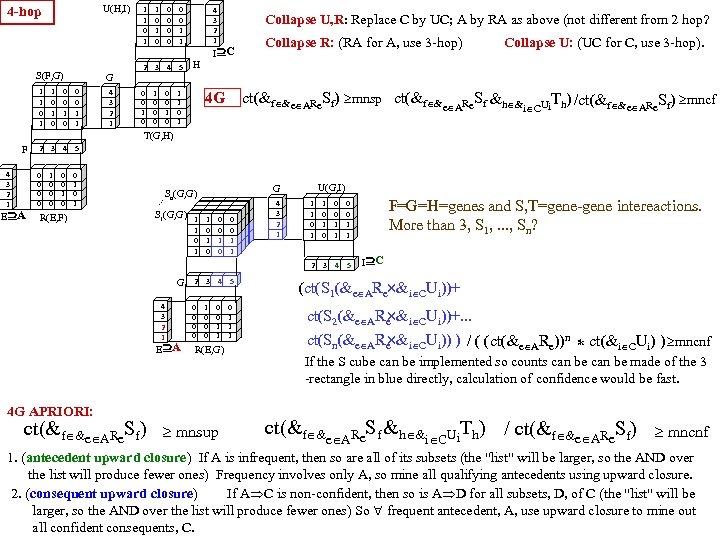 4-hop
U(H,I)
1 1 0 0
1 0 0 0
0 1 0 1
1 0 0 1
4
3
2
1
I⊇C
2 3 4 5
H
Collapse U,R: Replace C by UC; A by RA as above (not different from 2 hop?
Collapse R: (RA for A, use 3-hop)
Collapse U: (UC for C, use 3-hop).
S(F,G)
G
1 1 0 0
1 0 0 0
0 1 1 1
1 0 0 1
4
3
2
1
0 1 0 1
0 0 0 1
1 0 1 0
0 0 0 1
T(G,H)
4G
ct(&f∈&e∈ARe Sf) ≥mnsp
ct(&f∈&e∈ARe Sf &h∈&i∈CUi Th) /ct(&f∈&e∈ARe Sf) ≥mncf
F
2 3 4 5
4
3
2
1
0 1 0 0
0 0 0 1
0 0 1 0
0 0 0 1
E⊇A
R(E,F)
Sn(G,G)
...
S1(G,G)
1 1 0 0
1 0 0 0
0 1 1 1
1 0 0 1
G
4
3
2
1
U(G,I)
1 1 0 0
1 0 0 0
0 1 1 1
1 0 1 1
2 3 4 5
I⊇C
F=G=H=genes and S,T=gene-gene intereactions.
More than 3, S1, ..., Sn?
G
2 3 4 5
4
3
2
1
0 1 0 0
0 0 0 1
0 0 1 1
0 0 0 1
E⊇A
R(E,G)
(ct(S1(&e∈ARe×&i∈CUi))+
ct(S2(&e∈ARe×&i∈CUi))+...
ct(Sn(&e∈ARe×&i∈CUi)) ) / ( (ct(&e∈ARe))n * ct(&i∈CUi) )≥mncnf
If the S cube can be implemented so counts can be can be made of the 3
-rectangle in blue directly, calculation of confidence would be fast.
4G APRIORI:
ct(&f∈&e∈ARe Sf) ≥ mnsup
ct(&f∈&e∈ARe Sf &h∈&i∈CUi Th) / ct(&f∈&e∈ARe Sf) ≥ mncnf
1. (antecedent upward closure) If A is infrequent, then so are all of its subsets (the "list" will be larger, so the AND over
the list will produce fewer ones) Frequency involves only A, so mine all qualifying antecedents using upward closure.
2. (consequent upward closure) If A⇒C is non-confident, then so is A⇒D for all subsets, D, of C (the "list" will be
larger, so the AND over the list will produce fewer ones) So ∀ frequent antecedent, A, use upward closure to mine out
all confident consequents, C.